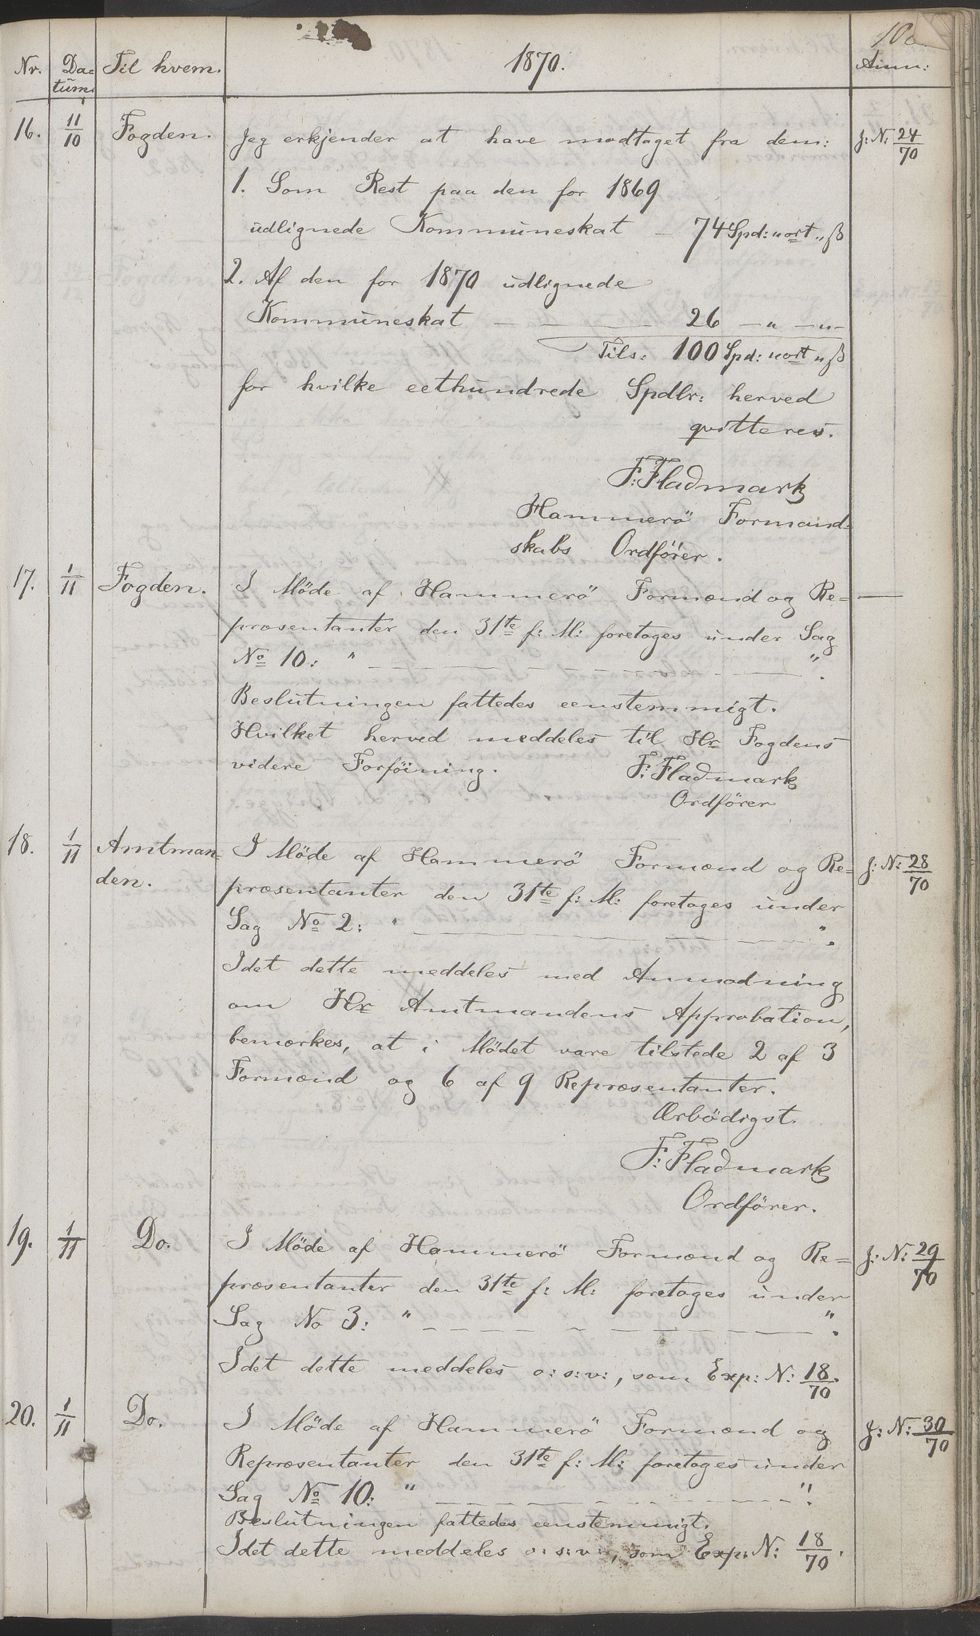 10
Nr. Da= Til hvem. 1870. Anm:
tum.
16. 11/10 Fogden. Jeg erkjender at have modtaget fra dem: J: N. 24/70
1. Som Rest paa den for 1869
udlignede Kommuneskat — 74 Spd: " ort " ß
2. Af den for 1870 udlignede
Kommuneskat — — — — 26 — " — " —
Tils: 100 Spd: " ort " ß
for hvilke eethundrede Spdlr: herved
qvitteres.
F: Fladmark
Hammerö Formand=
skabs Ordförer.
17. 1/11 Fogden. I Möde af Hammerö Formænd og Re= —
præsentanter den 31te f: M: foretoges under Sag
No 10: " — — — — — — — ".
Beslutningen fattedes eenstemmigt.
Hvilket herved meddeles til Hr Fogdens
videre Forföining. F: Fladmark
Ordförer
18. 1/11 Amtman= I Möde af Hammerö Formænd og Re= J: N: 28/70
den. præsentanter den 31te f: M: foretoges under
Sag No 2: " — — — — — — — ".
Idet dette meddeles med Anmodning
om Hr Amtmandens Approbation,
bemærkes, at i Mödet vare tilstede 2 af 3
Formænd og 6 af 9 Repræsentanter.
Ærbödigst.
F: Fladmark
Ordförer.
19. 1/11 Do. I Möde af Hammerö Formænd og Re= J: N: 29/70
præsentanter den 31te f: M: foretoges under
Sag No 3: " — — — — — — — ".
Idet dette meddeles o: s: v:, som Exp: N: 18/70.
20. 1/11 Do. I Möde af Hammerö Formænd og J: N: 30/70
Repræsentanter den 31te f: M: foretoges under
Sag No 10: " — — — — — — — ".
Beslutningen fattedes eenstemmigt.
Idet dette meddeles o: s: v:, som Exp: N: 18/70.